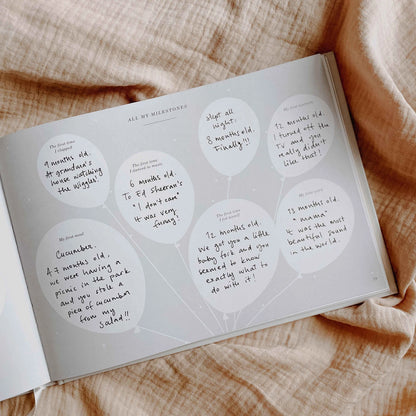 ALL MY MILESTONES
The first time
I clapped
9 months old.
At grandma's
house watching
the Wiggles!
The first time
I danced to music
6 months old.
To Ed Sheeran's
"I don't care"
It was very
funny!
slept all
night:
8 months old.
Finally!!!
My first tantrum
12 months old.
I turned off the
TV and you
really didn't
like that!
My first food
Cucumber.
4.7 months old,
we were having a
picnic in the park
and you stole a
piece of cucumber
from my
salad!!
The first time
I fed myself
12 months old.
We got you a little
baby fork and you
seemed to know
exactly what to
do with it!
My first word
13 months old.
"mama"
It was the most
beautiful sound
in the world.